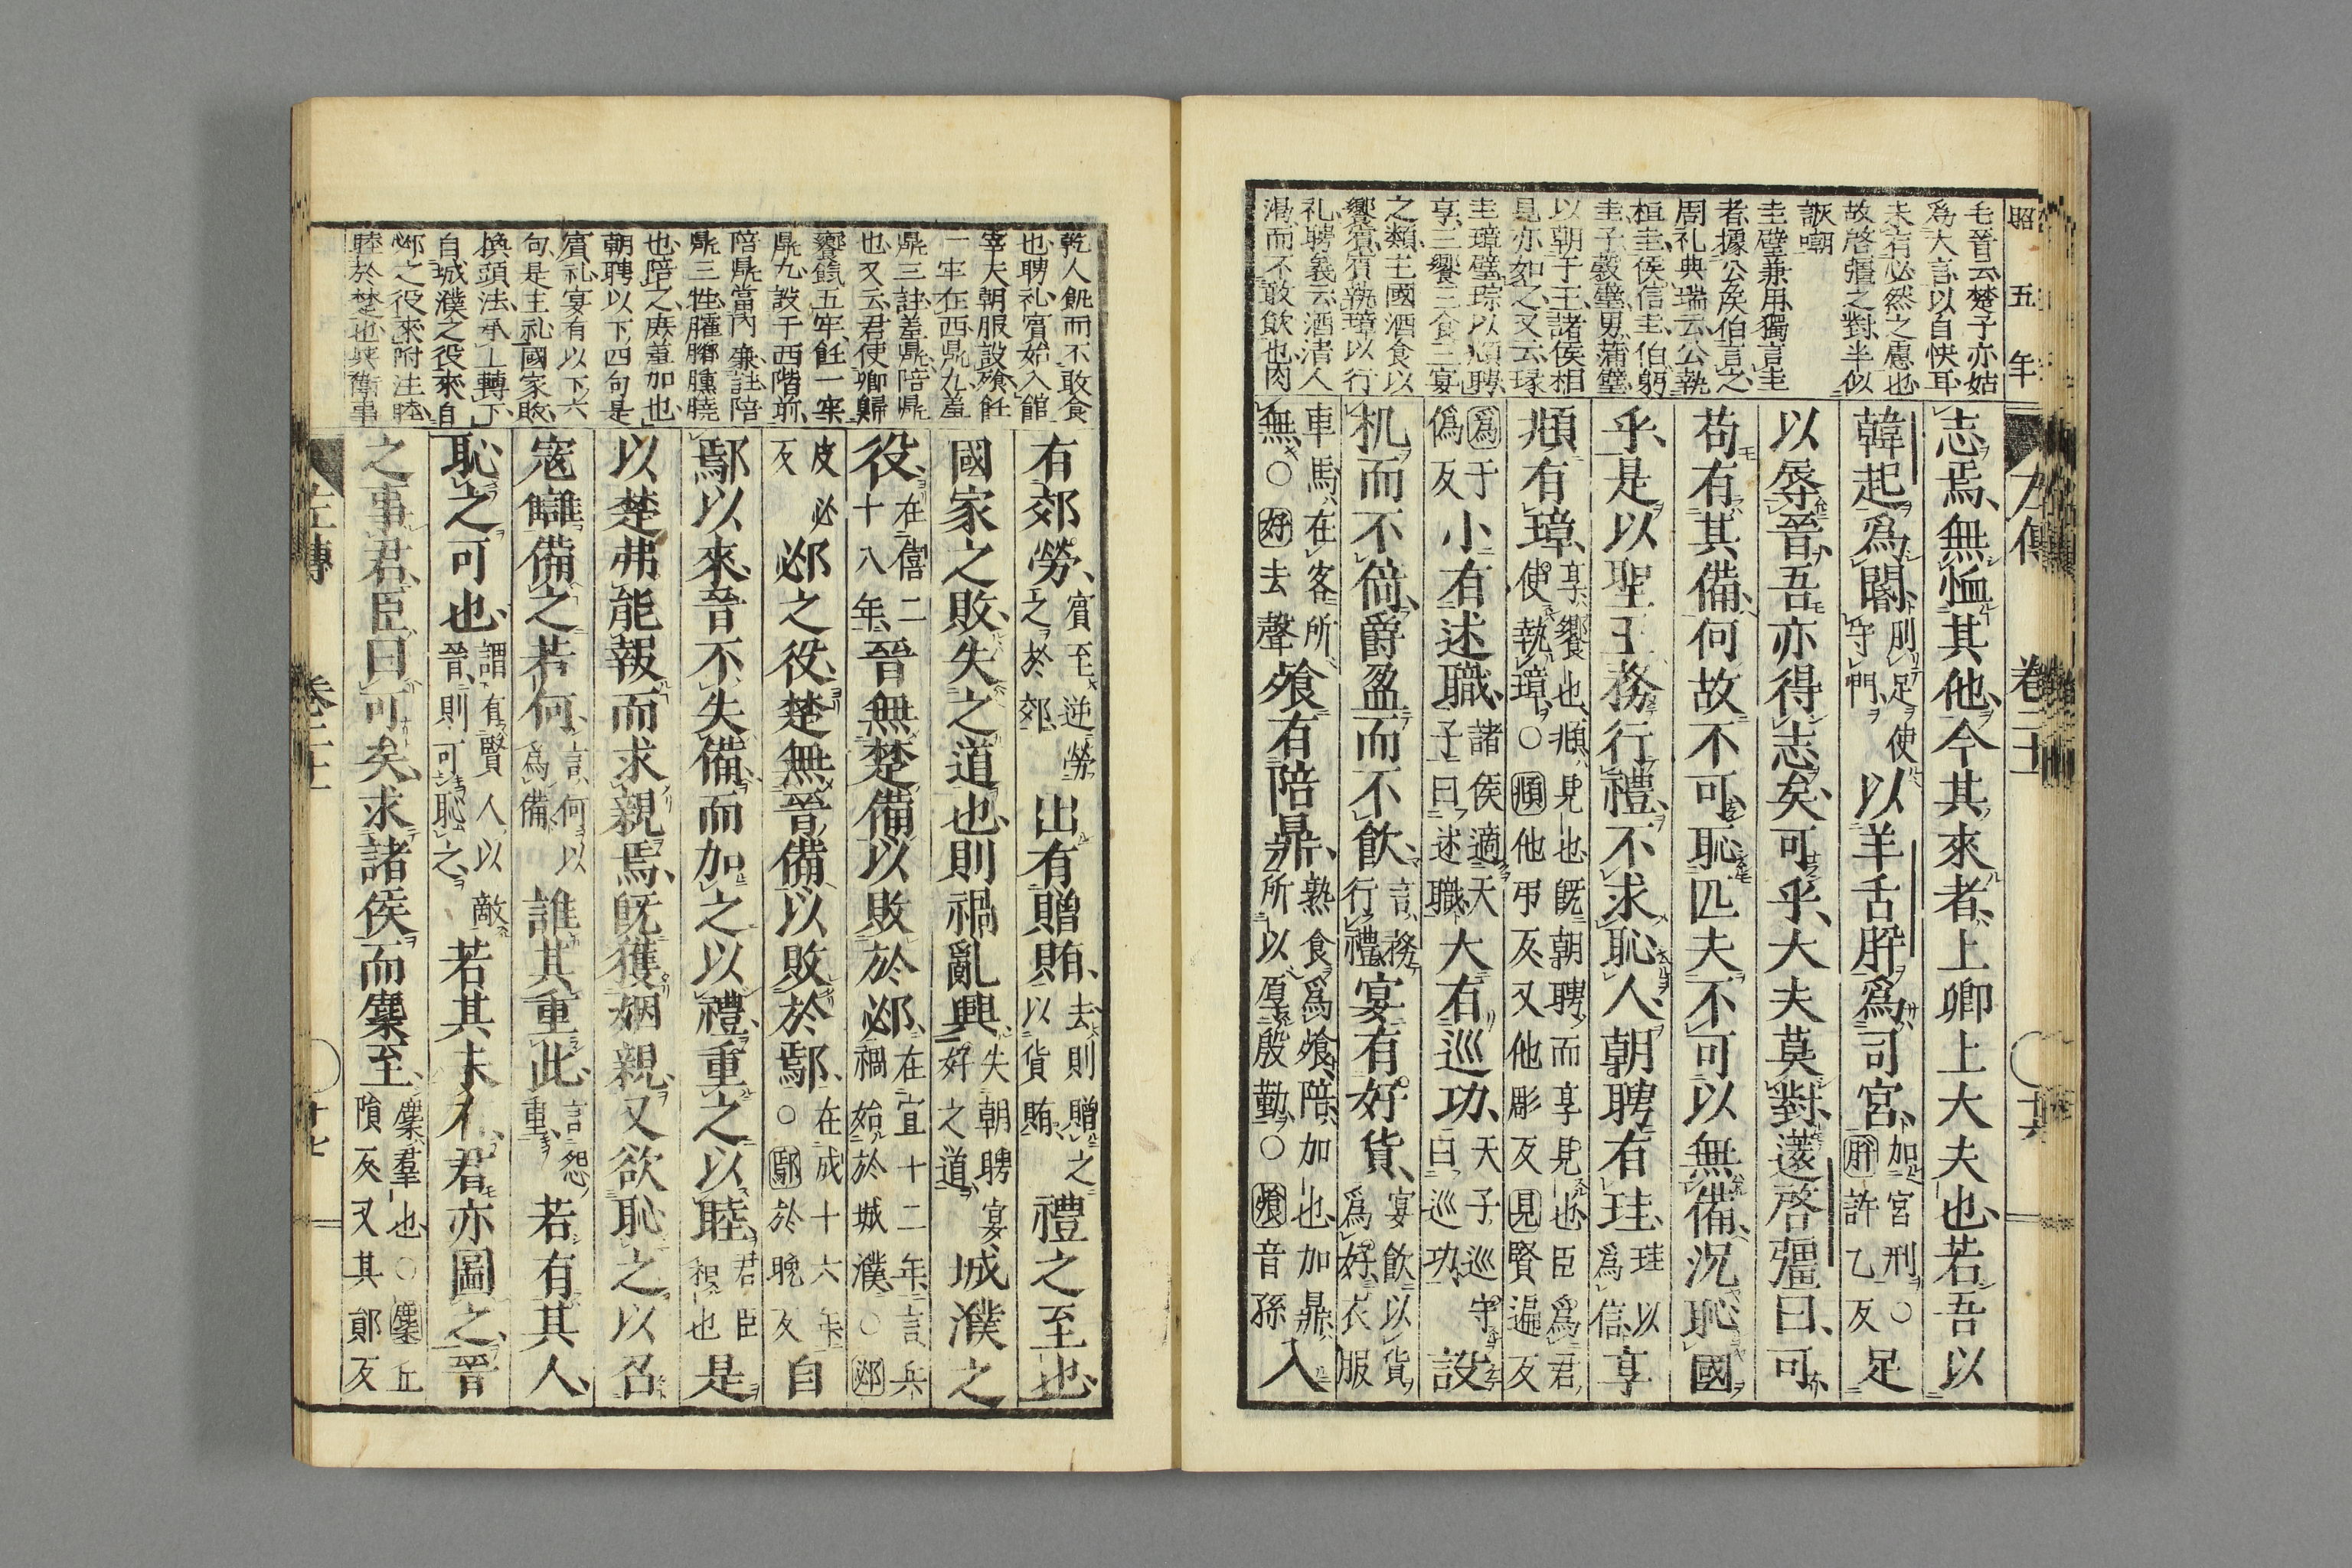 昭五年
毛晉云楚子亦姑
爲大言以自快耳
未有必然之慮也
故啓彊之對半似
詼嘲
圭璧兼用獨言圭
者據公矦伯言之
周礼典瑞云公執
桓圭矦信圭伯躬
圭子穀璧男蒲璧
以朝于王諸侯相
見亦如之又云瑑
圭璋璧琮以頫聘
享三饗三食三宴
之類主國酒食以
饗賓賓執璋以行
礼聘義云酒清人
渴而不敢飲也肉
左傳 卷二十一
志焉無恤其他今其來者上卿上大夫也若吾以
韓起爲閽刖足使守門以羊舌肸爲司宮加宮刑○肸許乙反足
以辱晉吾亦得志矣可乎大夫莫對薳啓彊曰可
苟有其備何故不可恥匹夫不可以無備況恥國
乎是以聖王務行禮不求恥人朝聘有珪珪以爲信享
頫有璋享饗也頫見也既朝聘而享見也臣爲君使執璋○頫他弔反又他彫反見賢遍反
爲于僞反小有述職諸侯適天子曰述職大有巡功天子巡守曰巡功設
机而不倚爵盈而不飲言務行禮宴有好貨宴飲以貨爲好衣服
車馬在客所無○好去聲飧有陪鼎熟食爲飧陪加也加鼎所以厚殷勤○飧音孫入
乾人飢而不敢食
也聘礼賓始入館
宰夫朝服設飧飪
一牢在西鼎九羞
鼎三註羞鼎陪鼎
也又云君使卿歸
饔餼五牢飪一牢
鼎九設于西階前
陪鼎當內廉註陪
鼎三牲臛膷臐膮
也陪之庶羞加也
朝聘以下四句是
賓礼宴有以下六
句是主礼國家敗
換頭法承上轉下
自城濮之役來自
邲之役來附注睦
睦於楚也
有郊勞賓至逆勞之於郊出有贈賄去則贈之以貨賄禮之至也
國家之敗失之道也則禍亂興失朝聘宴好之道城濮之
役在僖二十八年晉無楚備以敗於邲在宣十二年言兵禍始於城濮○邲
皮必反邲之役楚無晉備以敗於鄢在成十六年○鄢於晚反自
鄢以來晉不失備而加之以禮重之以睦君臣和也是
以楚弗能報而求親焉既獲姻親又欲恥之以召
寇讎備之若何言何以爲備誰其重此言怨重若有其人
恥之可也謂有賢人以敵晉則可恥之若其未有君亦圖之晉
之事君臣曰可矣求諸侯而麇至麇羣也○麇丘隕反又其郧反
左傳 卷二十一 十七